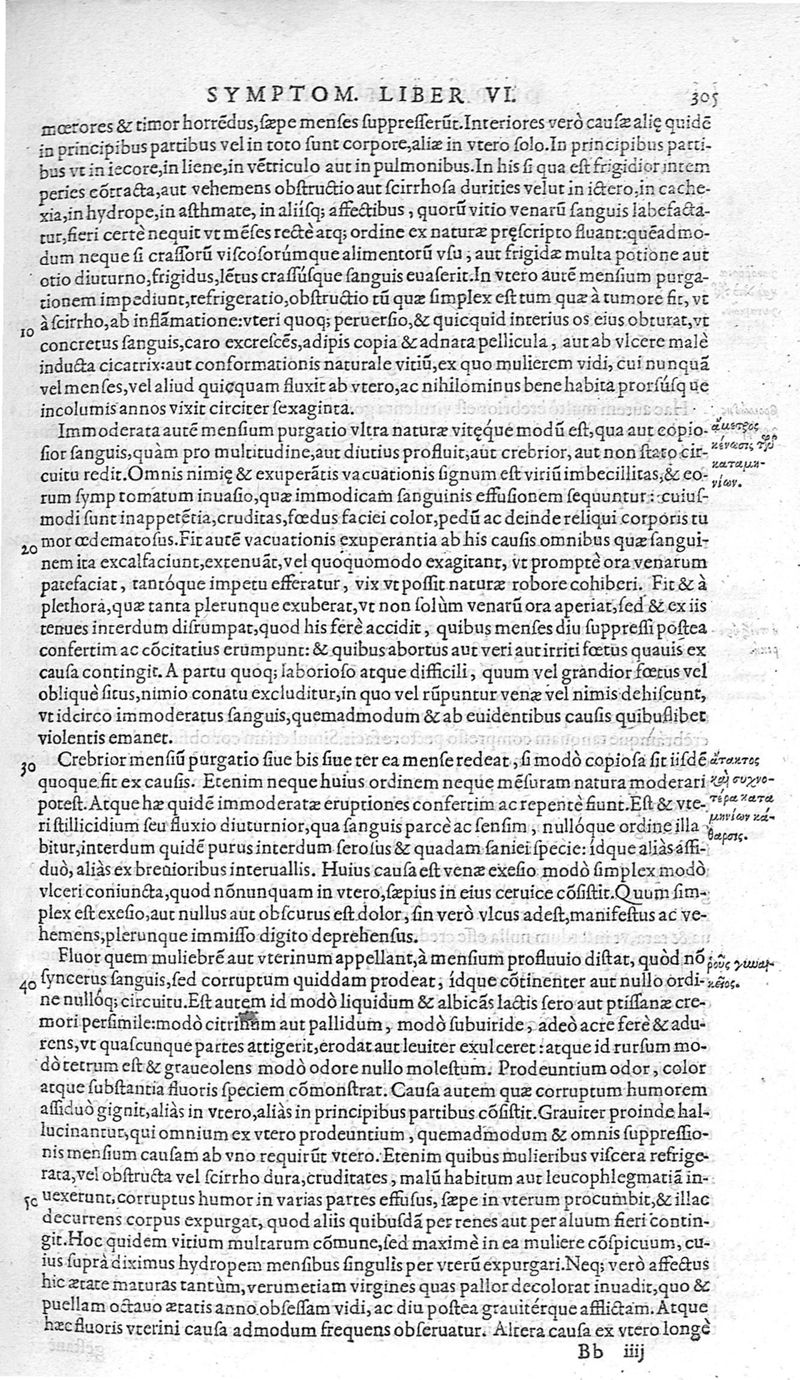 SYMPTOM. LIBER VI. 305
mœrores & timor horrẽdus, ſæpe menſes ſuppreſſerũt. Interiores verò cauſæ alię quidẽ
in principibus partibus vel in toto ſunt corpore, aliæ in vtero ſolo. In principibus parti-
bus vt in iecore, in liene, in vẽtriculo aut in pulmonibus. In his ſi qua eſt frigidior intem
peries cõtracta, aut vehemens obſtructio aut ſcirrhoſa durities velut in ictero, in cache-
xia, in hydrope, in aſthmate, in aliiſq; affectibus, quorũ vitio venarũ ſanguis labefacta-
tur, fieri certè nequit vt mẽſes rectè atq; ordine ex naturæ pręſcripto fluant: quẽadmo-
dum neque ſi craſſorũ viſcoſorúmque alimentorũ vſu, aut frigidæ multa potione aut
otio diuturno, frigidus, lẽtus craſſúſque ſanguis euaſerit. In vtero autẽ menſium purga-
tionem impediunt, refrigeratio, obſtructio tũ quæ ſimplex eſt tum quæ à tumore fit, vt
10 à ſcirrho, ab inflãmatione: vteri quoq; peruerſio, & quicquid interius os eius obturat, vt
concretus ſanguis, caro excreſcẽs, adipis copia & adnata pellicula, aut ab vlcere malè
inducta cicatrix: aut conformationis naturale vitiũ, ex quo mulierem vidi, cui nunquã
vel menſes, vel aliud quicquam fluxit ab vtero, ac nihilominus bene habita prorſúſque
incolumis annos vixit circiter ſexaginta.
Immoderata autẽ menſium purgatio vltra naturæ vitęque modũ eſt, qua aut copio- ἄμετρος
ſior ſanguis, quàm pro multitudine, aut diutius profluit, aut crebrior, aut non ſtato cir- κένωσις τῶν
cuitu redit. Omnis nimię & exuperãtis vacuationis ſignum eſt viriũ imbecillitas, & eo- καταμη-
rum ſymptomatum inuaſio, quæ immodicam ſanguinis effuſionem ſequuntur: cuiuſ- νίων.
modi ſunt inappetẽtia, cruditas, fœdus faciei color, pedũ ac deinde reliqui corporis tu
20 mor œdematoſus. Fit autẽ vacuationis exuperantia ab his cauſis omnibus quæ ſangui-
nem ita excalfaciunt, extenuãt, vel quoquomodo exagitant, vt promptè ora venarum
patefaciat, tantóque impetu efferatur, vix vt poſſit naturæ robore cohiberi. Fit & à
plethora, quæ tanta plerunque exuberat, vt non ſolùm venarũ ora aperiat, ſed & ex iis
tenues interdum diſrumpat, quod his ferè accidit, quibus menſes diu ſuppreſſi poſtea
confertim ac cõcitatius erumpunt: & quibus abortus aut veri aut irriti fœtus quauis ex
cauſa contingit. A partu quoq; laborioſo atque difficili, quum vel grandior fœtus vel
obliquè ſitus, nimio conatu excluditur, in quo vel rũpuntur venæ vel nimis dehiſcunt,
vt idcirco immoderatus ſanguis, quemadmodum & ab euidentibus cauſis quibuſlibet
violentis emanet.
30 Crebrior menſiũ purgatio ſiue bis ſiue ter ea menſe redeat, ſi modò copioſa ſit iiſdẽ ἄτακτος
quoque fit ex cauſis. Etenim neque huius ordinem neque mẽſuram natura moderari καὶ συχνο-
poteſt. Atque hæ quidẽ immoderatæ eruptiones confertim ac repentè fiunt. Eſt & vte- τέρα κατα
ri ſtillicidium ſeu fluxio diuturnior, qua ſanguis parcè ac ſenſim, nullóque ordine illa μηνίων κά-
bitur, interdum quidẽ purus interdum ſeroſus & quadam ſaniei ſpecie: idque aliàs aſſi- θαρσις.
duò, aliàs ex breuioribus interuallis. Huius cauſa eſt venæ exeſio modò ſimplex modò
vlceri coniuncta, quod nõnunquam in vtero, ſæpius in eius ceruice cõſiſtit. Quum ſim-
plex eſt exeſio, aut nullus aut obſcurus eſt dolor, ſin verò vlcus adeſt, manifeſtus ac ve-
hemens, plerunque immiſſo digito deprehenſus.
Fluor quem muliebrẽ aut vterinum appellant, à menſium profluuio diſtat, quòd nõ ῥοῦς γυναι-
40 ſyncerus ſanguis, ſed corruptum quiddam prodeat, idque cõtinenter aut nullo ordi- κεῖος.
ne nullóq; circuitu. Eſt autem id modò liquidum & albicãs lactis ſero aut ptiſſanæ cre-
mori perſimile: modò citrinum aut pallidum, modò ſubuiride, adeò acre ferè & adu-
rens, vt quaſcunque partes attigerit, erodat aut leuiter exulceret: atque id rurſum mo-
dò tetrum eſt & graueolens modò odore nullo moleſtum. Prodeuntium odor, color
atque ſubſtantia fluoris ſpeciem cõmonſtrat. Cauſa autem quæ corruptum humorem
aſſiduò gignit, aliàs in vtero, aliàs in principibus partibus cõſiſtit. Grauiter proinde hal-
lucinantur, qui omnium ex vtero prodeuntium, quemadmodum & omnis ſuppreſſio-
nis menſium cauſam ab vno requirũt vtero. Etenim quibus mulieribus viſcera refrige-
rata, vel obſtructa vel ſcirrho dura, cruditates, malũ habitum aut leucophlegmatiã in-
50 uexerunt, corruptus humor in varias partes effuſus, ſæpe in vterum procumbit, & illac
decurrens corpus expurgat, quod aliis quibuſdã per renes aut per aluum fieri contin-
git. Hoc quidem vitium multarum cõmune, ſed maximè in ea muliere cõſpicuum, cu-
ius ſuprà diximus hydropem menſibus ſingulis per vterũ expurgari. Neq; verò affectus
hic ætate maturas tantùm, verumetiam virgines quas pallor decolorat inuadit, quo &
puellam octauo ætatis anno obſeſſam vidi, ac diu poſtea grauitérque afflictam. Atque
hæc fluoris vterini cauſa admodum frequens obſeruatur. Altera cauſa ex vtero longè
Bb iiij